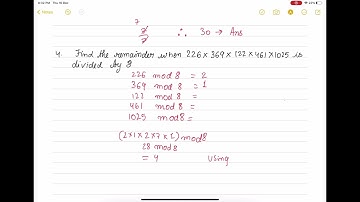 7
8/7 ∴ 30 → Ans
4. Find the remainder when 226 x 369 x 122 x 461 x 1025 is
divided by 8
226 mod 8 = 2
369 mod 8 = 1
123 mod 8 =
461 mod 8 =
1025 mod8 =
(2x1x2x7x1) mod8
28 mod 8
= 4 using